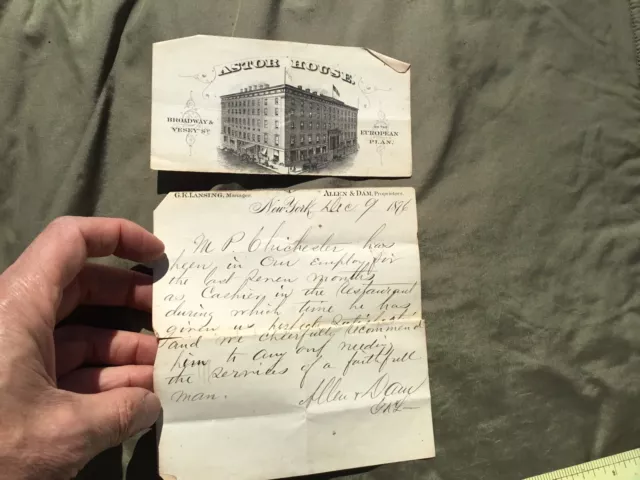 ASTOR HOUSE.
BROADWAY &
VESEY ST.
On the
EUROPEAN
PLAN.
G.K. LANSING, Manager. ALLEN & DAM, Proprietors.
New York Dec 9 1876
M P. Chichester has
been in our employ for
the last seven months
as Cashier in the restaurant
during which time he has
given us perfect satisfaction
and we cheerfully recommend
him to any one needing
the services of a faithfull
man.
Allen & Dam